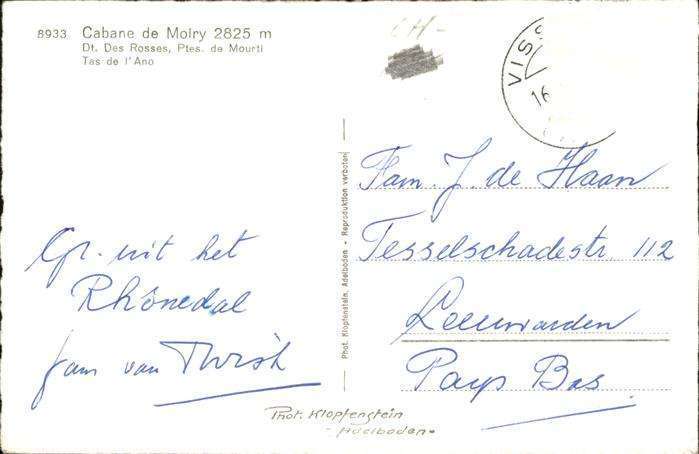 8933 Cabane de Moiry 2825 m
Dt. Des Rosses, Ptes. de Mourti
Tas de l'Ano
CH-
VIS
16
Phot. Klopfenstein, Adelboden - Reproduktion verboten
Gr. uit het
Rhônedal
fam van
Fam. J. de Haan
Tesselschadestr 112
Leeuwarden
Pays Bas
Phot. Klopfenstein
- Adelboden -